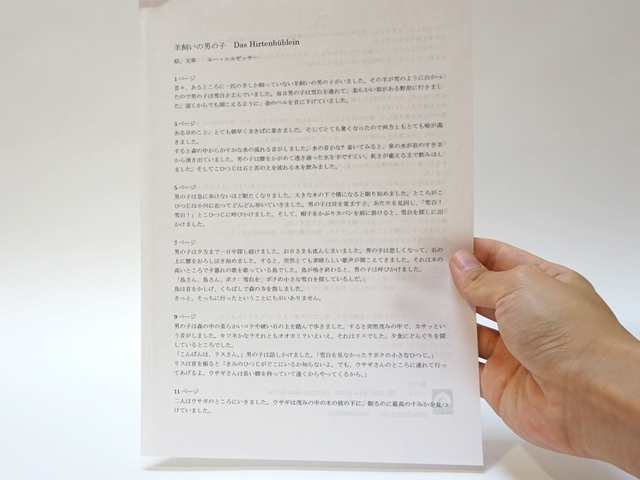 羊飼いの男の子　Das Hirtenbüblein
絵、文章　ヨー・エルゼッサー
1ページ
昔々、あるところに一匹の羊しか飼っていない羊飼いの男の子がいました。その羊が雪のように白かっ
たので男の子は雪白とよんでいました。毎日男の子は雪白を連れて、柔らかい草がある野原に行きまし
た。遠くからでも聞こえるように、金のベルを首に下げていました。
3ページ
ある日のこと、とても朝早くまきばに着きました。そしてとても暑くなったので両方ともとても喉が渇
きました。
すると森の中からかすかな水の流れる音がしました。水の音かな？着いてみると、泉の水が岩のすきま
から湧き出ていました。男の子は腰をかがめて透き通った水を手ですくい、乾きが癒えるまで飲みほし
ました。そしてこひつじは石と岩の上を流れる水を飲みました。
5ページ
男の子は急に歩けないほど眠たくなりました。大きな木の下で横になると眠り始めました。ところがこ
ひつじは小川に沿ってどんどん歩いていきました。男の子は目を覚ますと、あたりを見回し、「雪白！
雪白！」とこひつじに呼びかけました。そして、帽子をかぶりカバンを肩に掛けると、雪白を探しに出
かけました。
7ページ
男の子は夕方まで一日中探し続けました。お日さまも沈んでしまいました。男の子は悲しくなって、石の
上に腰をおろし泣き始めました。すると、突然とても素晴らしい歌声が聞こえてきました。それは木の
高いところで夕暮れの歌を歌っている鳥でした。鳥が鳴き終わると、男の子は呼びかけました。
「鳥さん、鳥さん、ボク、雪白を、ボクの小さな雪白を探しているんだ。」
鳥は首をかしげ、くちばしで森の方を指しました。
きっと、そっちに行ったということにちがいありません。
9ページ
男の子は森の中の柔らかいコケや硬い石の上を踏んで歩きました。すると突然茂みの中で、カサッとい
う音がしました。キツネかな？それともオオカミ？いえいえ、それはリスでした。夕食にどんぐりを探
しているところでした。
「こんばんは、リスさん。」男の子は話しかけました。「雪白を見なかった？ボクの小さなひつじ。」
リスは首を振ると「きみのひつじがどこにいるか知らないよ。でも、ウサギさんのところに連れて行っ
てあげるよ。ウサギさんは長い脚を持っていて遠くからやってくるから。」
11ページ
二人はウサギのところにいきました。ウサギは茂みの中の木の枝の下に、眠るのに最高のすみかを見つ
けていました。